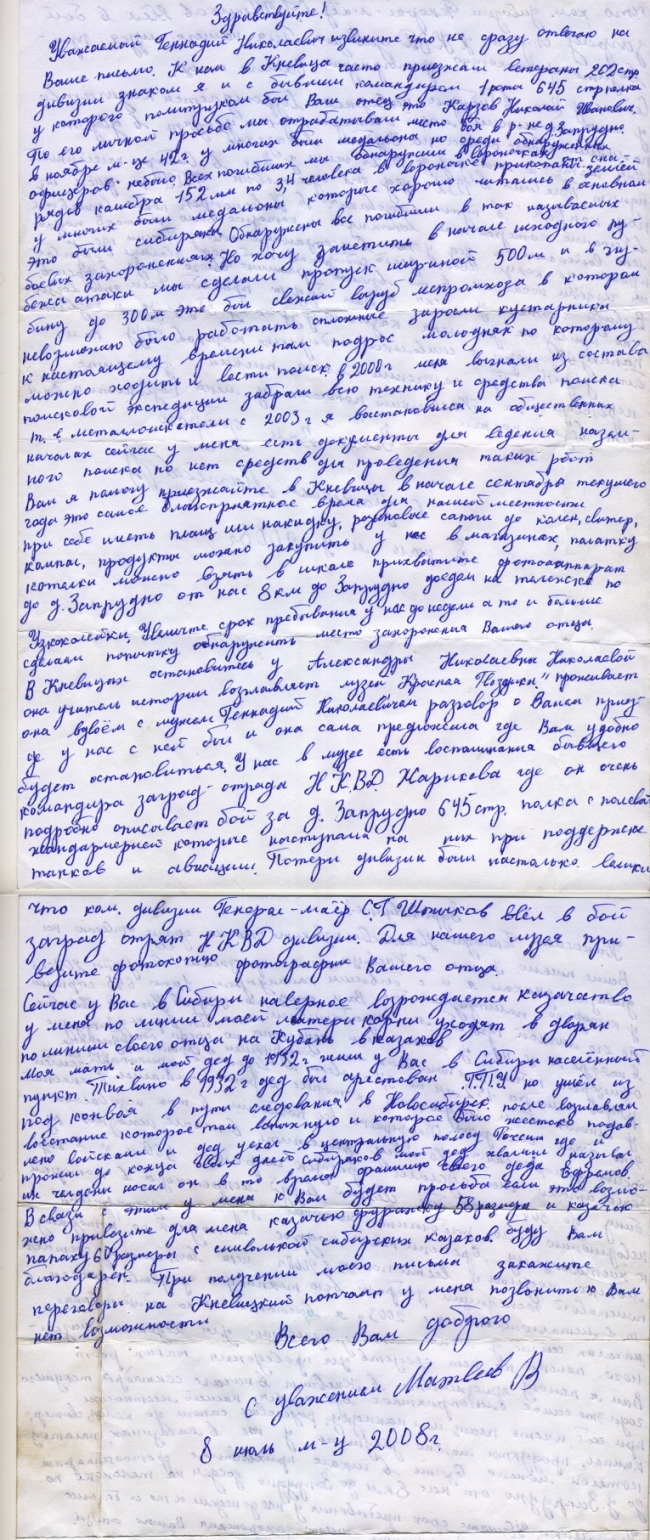 Здравствуйте!
Уважаемый Геннадий Николаевич извините что не сразу отвечаю на
Ваше письмо. К нам в Кневицы часто приезжали ветераны 202 стр.
дивизии знаком я и с бывшим командиром 1 роты 645 стр полка
у которого политруком был Ваш отец это Карзов Николай Иванович.
По его личной просьбе мы отрабатывали место боя в р-не д Запрудно
в ноябре м-це 42 г. у многих были медальоны но среди обнаруженных
офицеров небыло. Всех погибших мы обнаружили в воронках из сна-
рядов калибра 152 мм по 3 4 человека в воронке прикопаны землей
у многих были медальоны которые хорошо читались в основном
это были сибиряки. Обнаружены все погибшие в так называемых
боевых захоронениях. Но хочу заметить в начале исходного ру-
бежа атаки мы сделали пропуск шириной 500 м и в глу-
бину до 300 м это был свежий выруб мепромхоза в котором
невозможно было работать сплошные заросли кустарники
к настоящему времени там подрос молодняк по которому
можно ходить и вести поиск. в 2000 г меня выгнали из состава
поисковой экспедиции забрали всю технику и средства поиска
т. е металлоискатели с 2003 г я востановился на общественных
началах сейчас у меня есть документы для ведения назем-
ного поиска но нет средств для проведения таких работ
Вам я помогу приезжайте в Кневицы в начале сентября текущего
года это самое благоприятное время для нашей местности
при себе иметь плащ или накидку, резиновые сапоги до колен, свитер,
компас, продукты можно закупить у нас в магазинах, палатку
котелки можно взять в школе прихватите фотоаппарат
до д. Запрудно от нас 8 км до Запрудно доедем на тележке по
Узкоколейки. Увеличте срок пребывания у нас до недели а то и больше
сделаем попытку обнаружить место захоронения Вашего отца.
В Кневицах остановитесь у Александры Николаевны Николаевой
она учитель истории возглавляет музей "Красная Гвоздика" проживает
она вдвоём с мужем Геннадий Николаевичем разговор о Вашем приез-
де у нас с ней был и она сама предложила где Вам удобно
будет остановиться. У нас в музее есть воспоминания бывшего
командира заград-отряда Н.К.В.Д. Нарикова где он очень
подробно описывает бой за д. Запрудно 645 стр. полка с полевой
жандармерией которые наступала на них при поддержке
танков и авиации. Потери дивизии были настолько велики
что ком. дивизии Генерал-маёр С.Г Штыков ввёл в бой
заград отрят Н К.В.Д дивизии. Для нашего музея при-
везите фотокопию фотографии Вашего отца.
Сейчас у Вас в Сибири наверное возрождается казачество
у меня по линии моей матери корни уходят в дворян
по линии своего отца на Кубань в казаков
Моя мать и мой дед до 1932 г жили у Вас в Сибири населённый
пункт. Тихвино в 1932 г дед был арестован Г.П.У но ушёл из
под конвоя в пути следования в Новосибирск. после возглавлял
восстание которое там вспыхнуло и которое было жестоко подав-
лено войсками и дед уехал в центральную полосу России где и
прожил до конца своих дней сибиряков мой дед хвалил называл
их челдоны носил он в то время фамилию своего деда Ефремов
В связи с этим у меня к Вам будет просьба если это возмо-
жно привезите для меня казачью фуражку 58 размера и казачью
папаху 60 размеры с символикой сибирских казаков буду Вам
благодарен. При получении моего письма закажите
переговоры на Кневицкий почтамт у меня позвонить к Вам
нет возможности
Всего Вам доброго
С уважением Матвеев В
8 июль м-ц 2008 г.